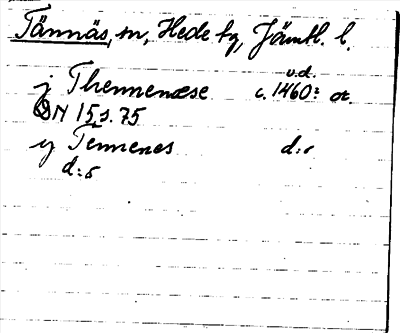 Tännäs, sn, Hede tg, Jämtl. l.
v.d.
j Thennenæse c. 1460: or.
DN 15, s. 75
y Tennenes d:o
d:o